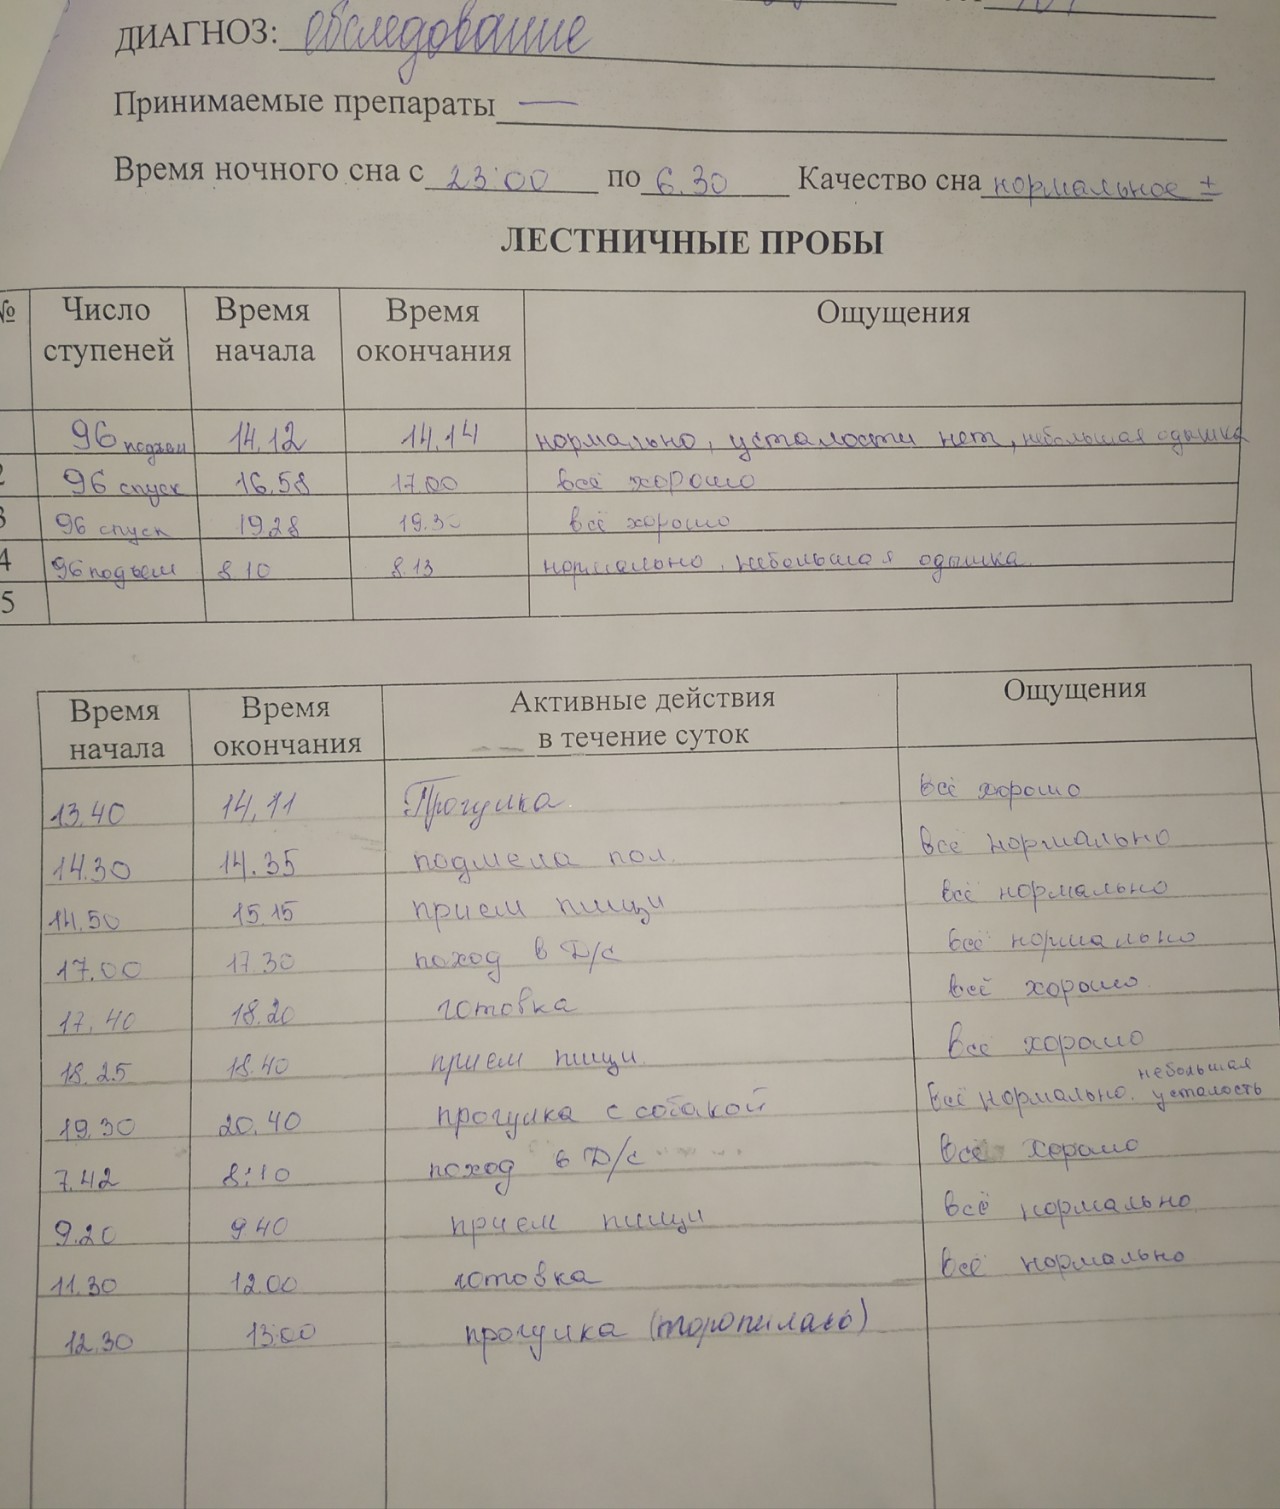 ДИАГНОЗ: обследование
Принимаемые препараты —
Время ночного сна с 23:00 по 6.30 Качество сна нормальное ±
ЛЕСТНИЧНЫЕ ПРОБЫ
№ Число ступеней Время начала Время окончания Ощущения
96 подъем 14.12 14.14 нормально, усталости нет, небольшая одышка
2 96 спуск 16.58 17.00 всё хорошо
3 96 спуск 19.28 19.3 всё хорошо
4 96 подъем 8.10 8.13 нормально, небольшая одышка
5
Время начала Время окончания Активные действия в течение суток Ощущения
13.40 14.11 Прогулка. всё хорошо
14.30 14.35 подмела пол. всё нормально
14.50 15.15 прием пищи всё нормально
17.00 17.30 поход в Д/с всё нормально
17.40 18.20 готовка всё хорошо.
18.25 18.40 прием пищи. всё хорошо
19.30 20.40 прогулка с собакой всё нормально. небольшая усталость
7.42 8:10 поход в Д/с всё хорошо
9.20 9.40 прием пищи всё нормально.
11.30 12.00 готовка всё нормально
12.30 13:00 прогулка (торопилась)